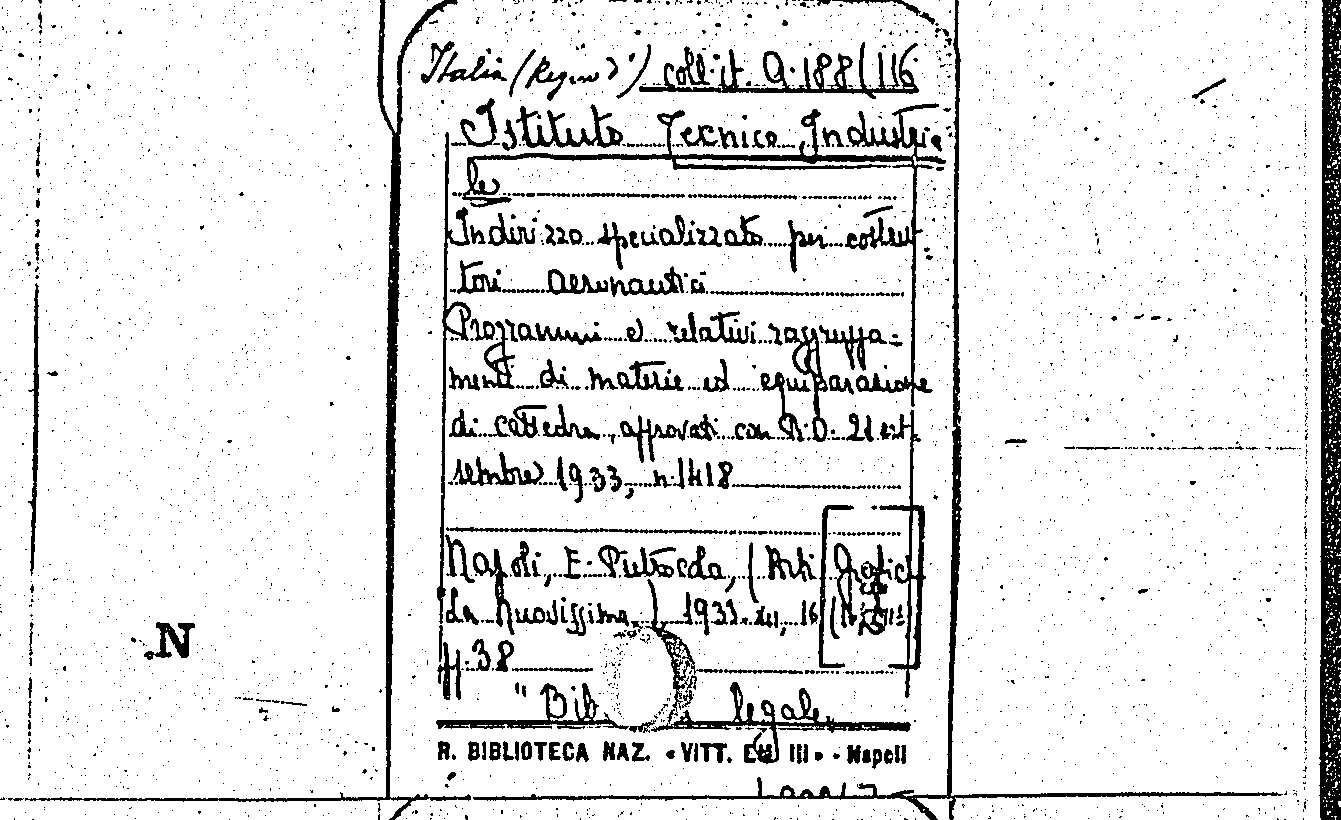 Italia (Regno d') coll. it. A. 188 (116
Istituto Tecnico Industria
le
Indirizzo specializzato per costrut
tori aeronautici
Programmi e relativi raggruppa=
menti di materie ed equiparazione
di cattedra, approvati con R. D. 21 set
sembre 1933, n. 1418
Napoli, E. Pietrocola, (Arti Grafich
"La Nuovissima,) 1933. XII, 16
pp. 38
"Bib legale"
R. BIBLIOTECA NAZ. «VITT. EM III» - Napoli
N